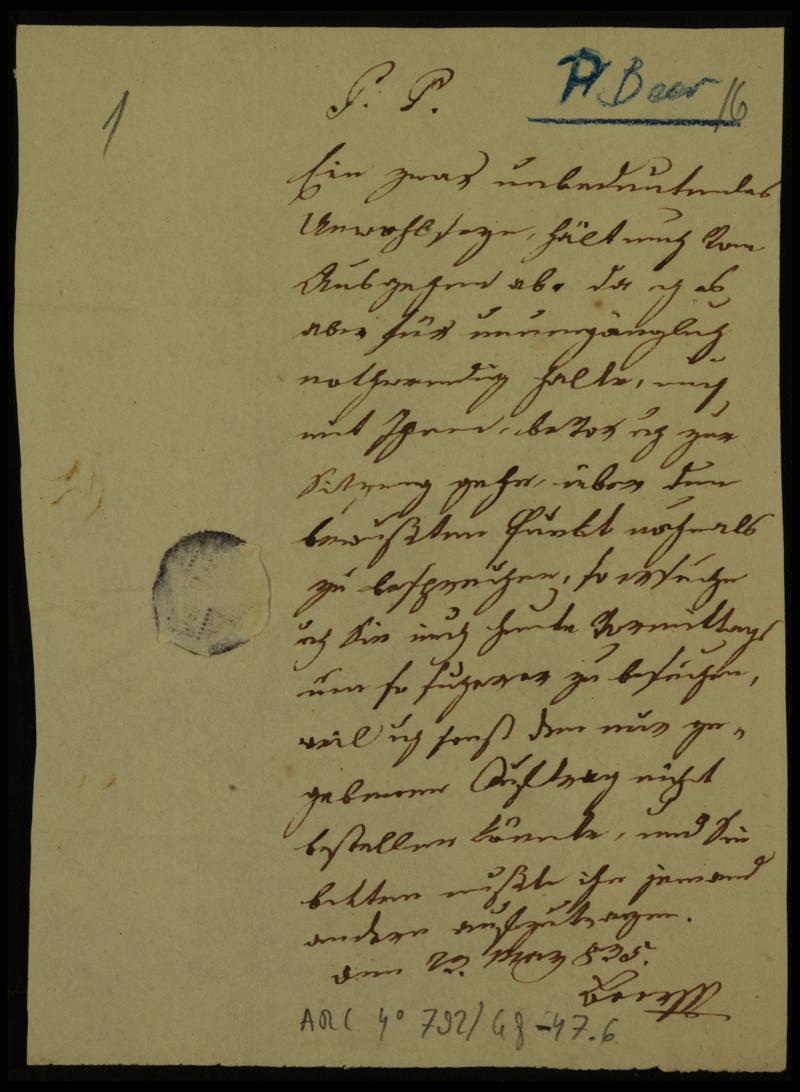 1
P. P.
Pr. Beer 16
Ein zwar unbedeutendes
Unwohlseyn, hält mich vom
Ausgehen ab. da ich es
aber für unumgänglich
nothwendig halte, mich
mit Ihnen, bevor ich zur
Sitzung gehe, über den
bewußten Punkt nochmals
zu besprechen, so ersuche
ich Sie mich heute Vormittags
um so sicherer zu besuchen,
weil ich sonst den mir ge-
gebenen Auftrag nicht
bestellen könnte, und Sie
bitten müßte ihn jemand
andern aufzutragen.
den 23. May 835.
Beer
ARC 4° 792/G8-47.6